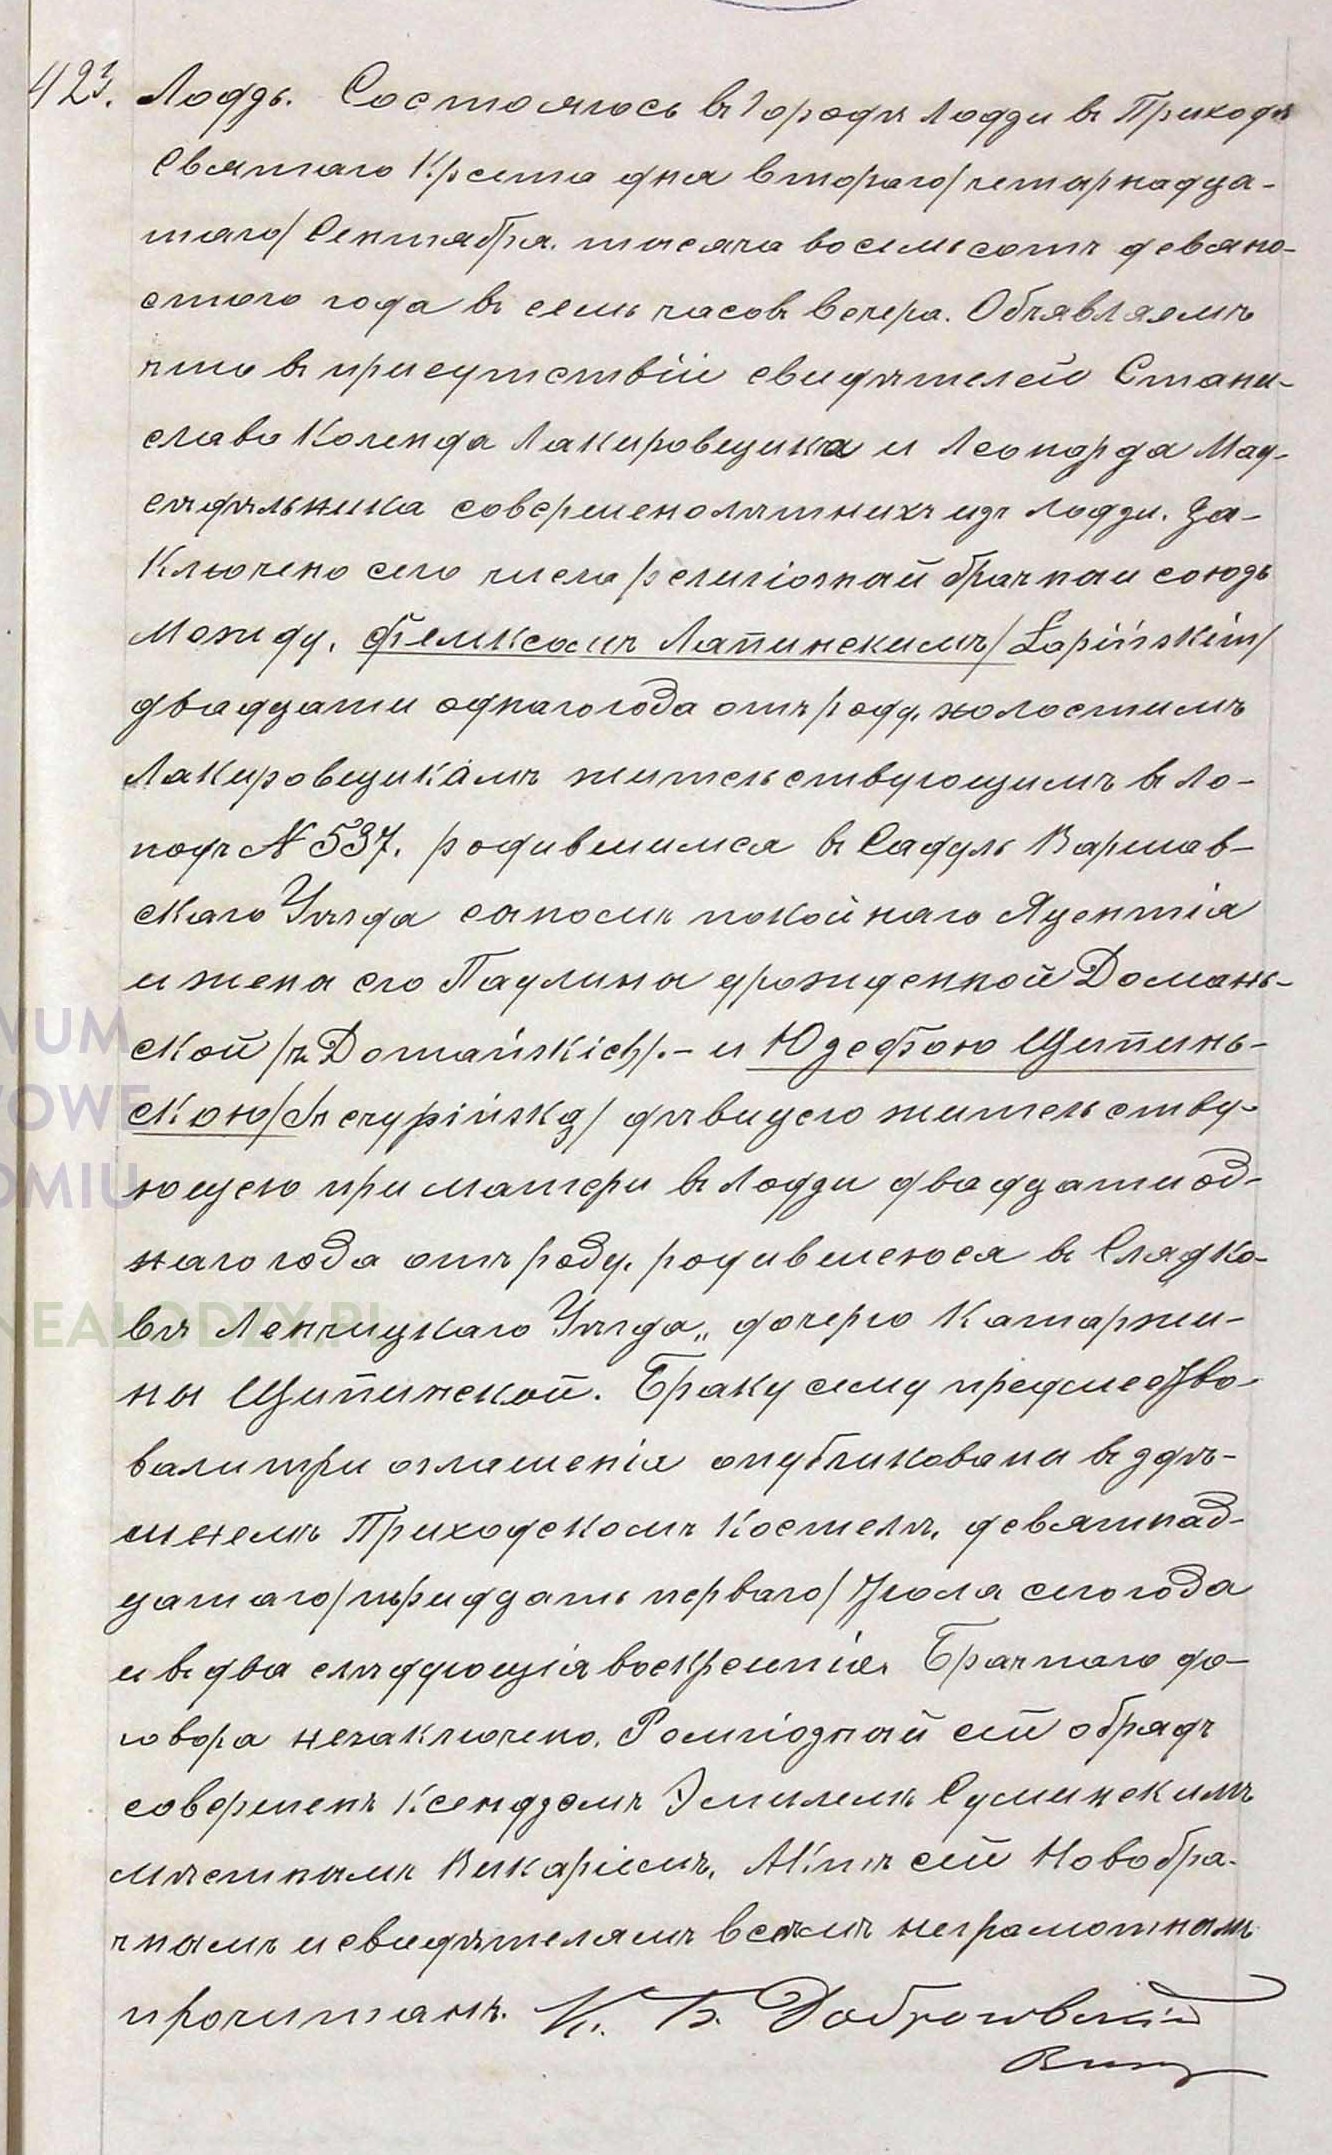 423. Лодзь. Состоялось въ Городѣ Лодзи въ Приходѣ
Святаго Креста дня втораго/четырнадца-
таго/ Сентября. тысяча восемьсотъ девяно-
стого года въ семь часовъ вечера. Объявляемъ
что въ присутствіи свидѣтелей Стани-
слава Коленда Лакировщика и Леонарда Мад-
совершенолѣтнихъ изъ Лодзи. За-
Ключено сего числа религіозный брачный союзъ
Между. Феликсомъ Лапинскимъ/Łapińskim/
двадцати однаго года отъ роду, холостымъ
Лакировщикамъ жительствующимъ въ Ло-
подъ N 537. родившимся въ Варшав-
скаго Уѣзда сыномъ покойнаго Яцентія
и жены его Паулины урожденной Домань-
ской /z Domańskich/.- и Юзефою Щипинь-
скою/Szczypińską/ дѣвицею жительству-
ющею при матери въ Лодзи двадцати од-
наго года отъ роду, родившеюся въ Сладко-
вѣ Ленчицкаго Уѣзда„ дочерью Катаржи-
ны Щипинской. Браку сему предшество-
вали три оглашенія опубликованы въ здѣ-
шнемъ Приходскомъ Костелѣ, девятнад-
цатаго/тридцать перваго/ Іюля сего года
и въ два слѣдующія воскресенія. Брачнаго до-
говора незаключено. Религіозный сей обрядъ
совершенъ Ксендзомъ Эмилемъ Суминскимъ
мѣстнымъ Викаріемъ. Актъ сей Новобра-
чнымъ и свидѣтелямъ всѣмъ неграмотнымъ
прочитанъ. К. Б.